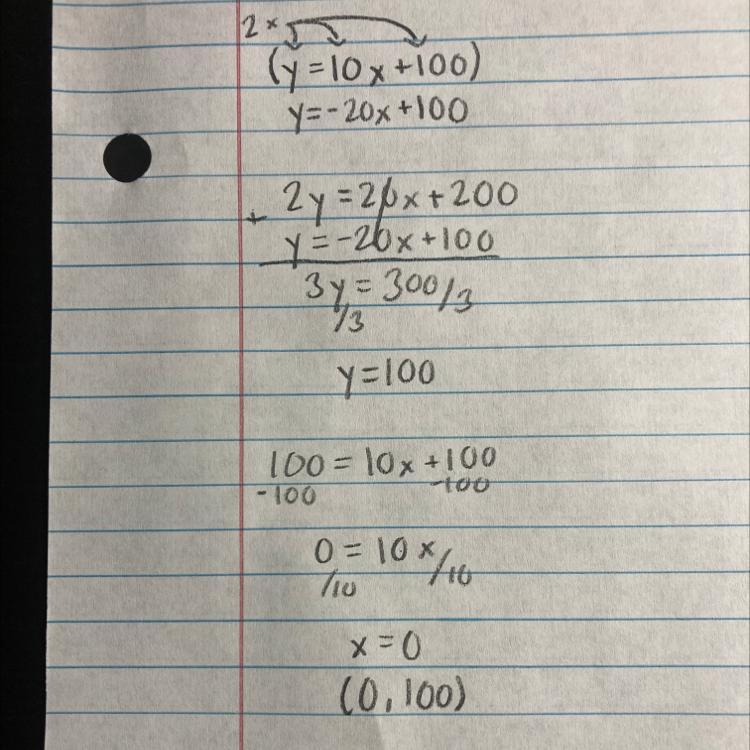 2×
(y=10x+100)
y=-20x+100
2y=20x+200
+
y=-20x+100
3y=300/3
/3
y=100
100=10x+100
-100 -100
0=10x/10
/10
x=0
(0,100)